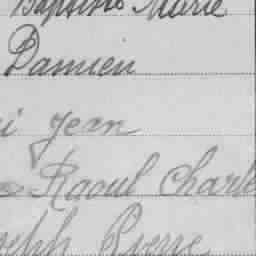 Baptiste Marie
Damien
i Jean
Raoul Charle
seph Pierre